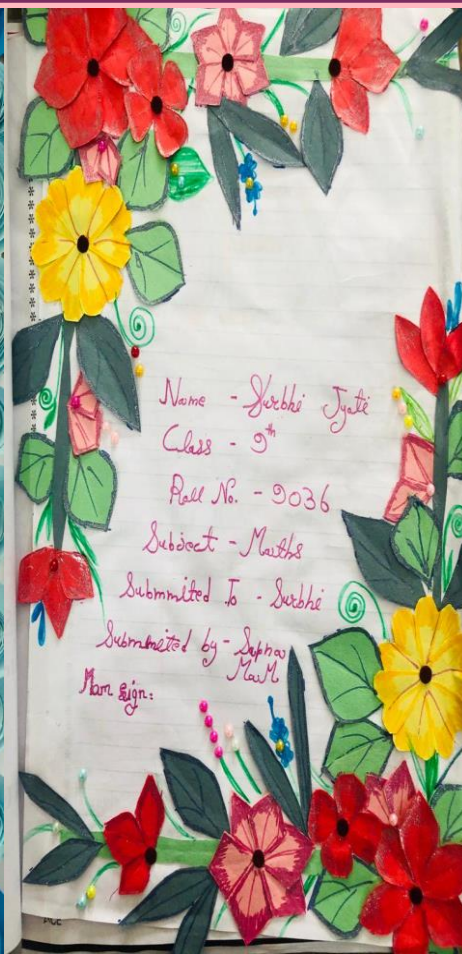 Name - Surbhi Jyoti
Class - 9th
Roll No. - 9036
Subject - Maths
Submmited To - Surbhi
Submmeted by - Sapna
Ma.M
Mam sign: